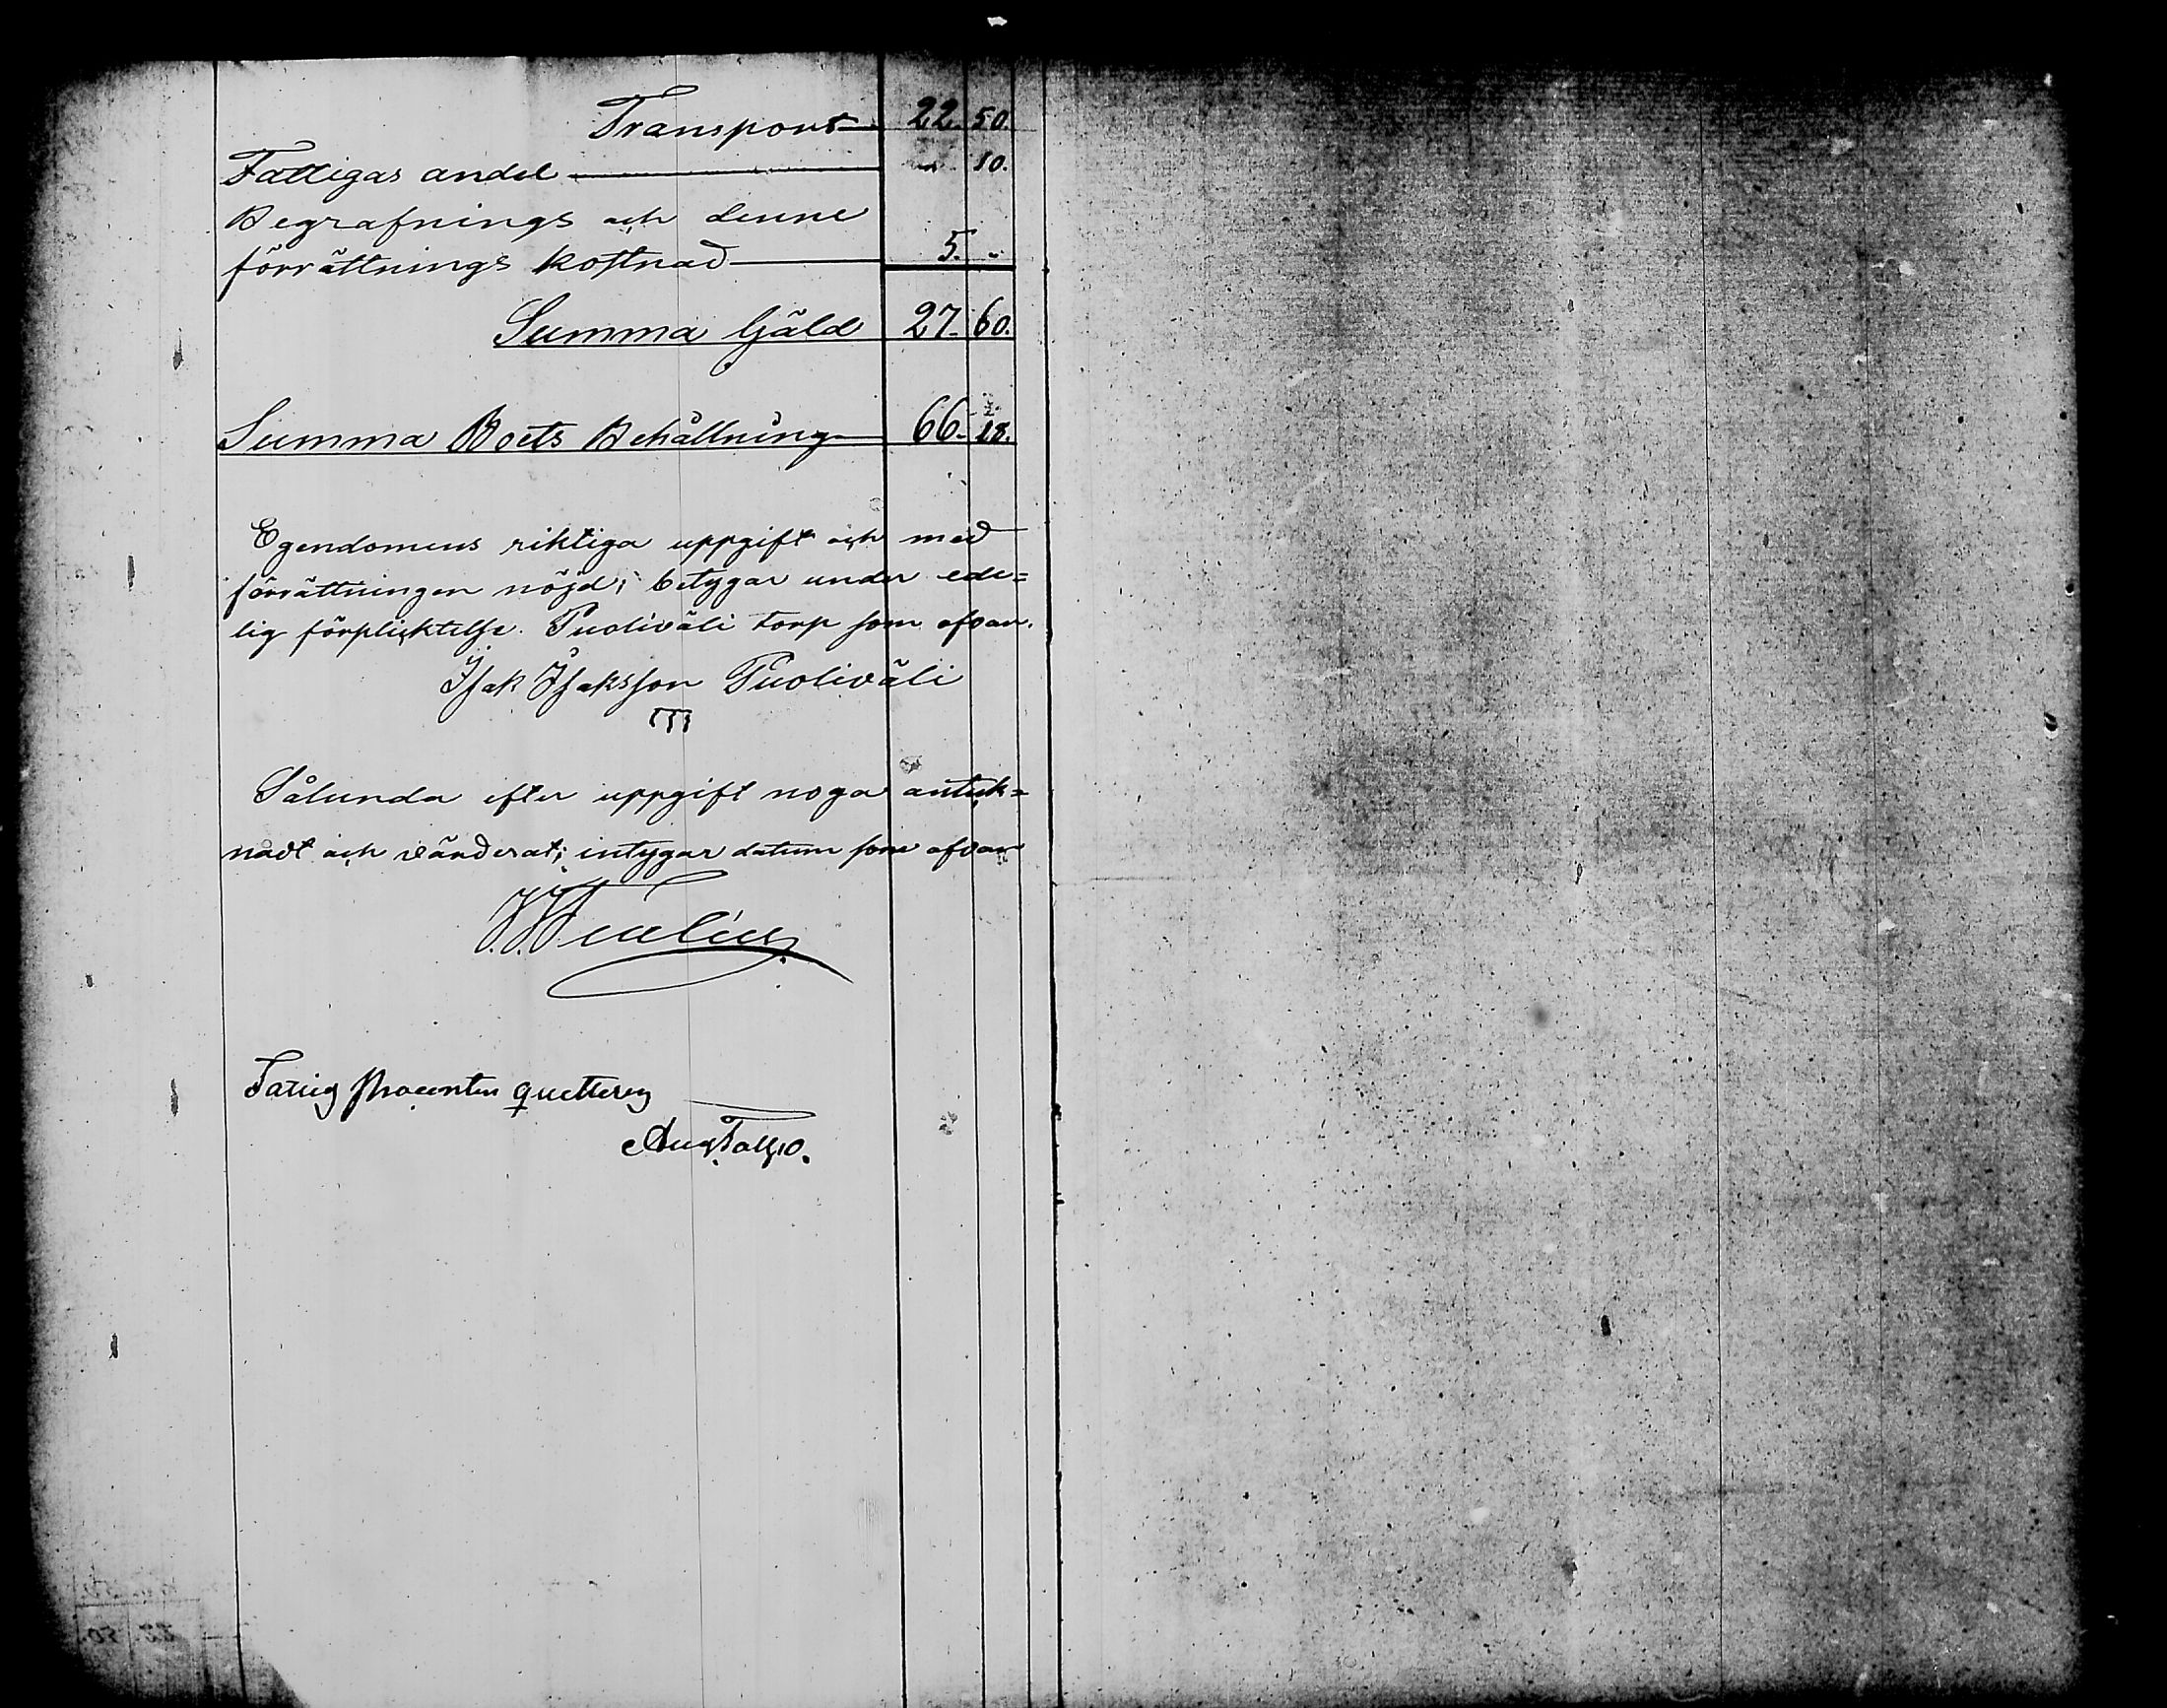 Transport 22. 50.
Fattigas andel 10.
Begrafnings och denne
förrättnings kostnad 5. -
Summa Gäld 27. 60.
Summa Boets Behållning 66. 18.
Egendomens riktiga uppgift och med
förrättningen nöjd; betygar under ede=
lig förpliktelse. Puoliväli torp som ofvan.
Isak Isaksson Puoliväli
Sålunda efter uppgift noga antek=
nadt och värderat; intygar datum som ofvan
Fattig procenten quitteres
Aug.
22. 50.